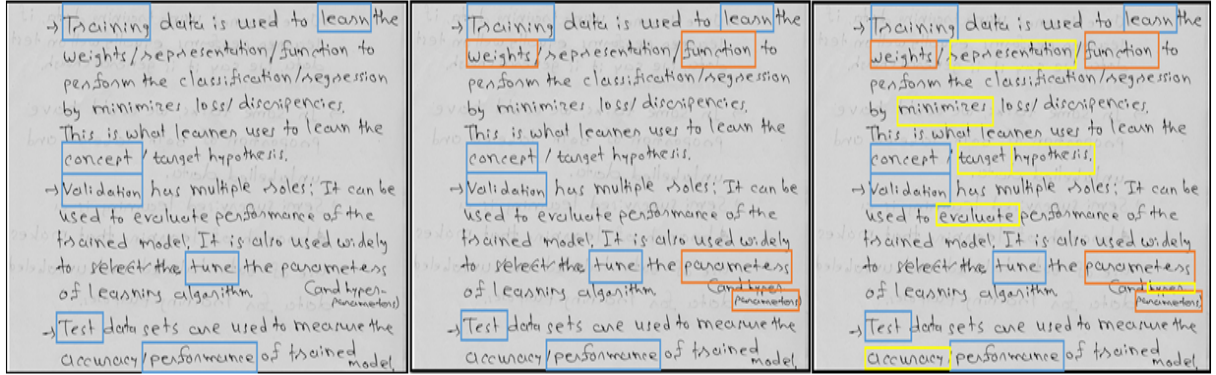 → Training data is used to learn the
weights/representation/function to
perform the classification/regression
by minimizes loss/discripencies.
This is what learner uses to learn the
concept / target hypothesis.
→ Validation has multiple roles: It can be
used to evaluate performance of the
trained model. It is also used widely
to select the tune the parameters
of learning algorithm (and hyper-
parameters)
→ Test data sets are used to measure the
accuracy/performance of trained
model.
→ Training data is used to learn the
weights/representation/function to
perform the classification/regression
by minimizes loss/discripencies.
This is what learner uses to learn the
concept / target hypothesis.
→ Validation has multiple roles: It can be
used to evaluate performance of the
trained model. It is also used widely
to select the tune the parameters
of learning algorithm (and hyper-
parameters)
→ Test data sets are used to measure the
accuracy/performance of trained
model.
→ Training data is used to learn the
weights/representation/function to
perform the classification/regression
by minimizes loss/discripencies.
This is what learner uses to learn the
concept / target hypothesis.
→ Validation has multiple roles: It can be
used to evaluate performance of the
trained model. It is also used widely
to select the tune the parameters
of learning algorithm (and hyper-
parameters)
→ Test data sets are used to measure the
accuracy/performance of trained
model.